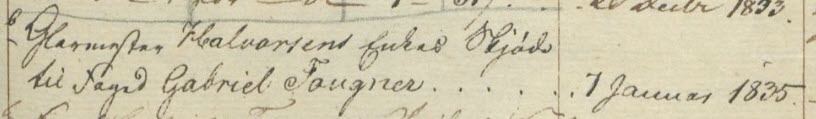 Decbr 1833.
6 Glarmester Halvorsens Enkes Skjøde
til Foged Gabriel Fougner . . . . . . 7 Januar 1835.